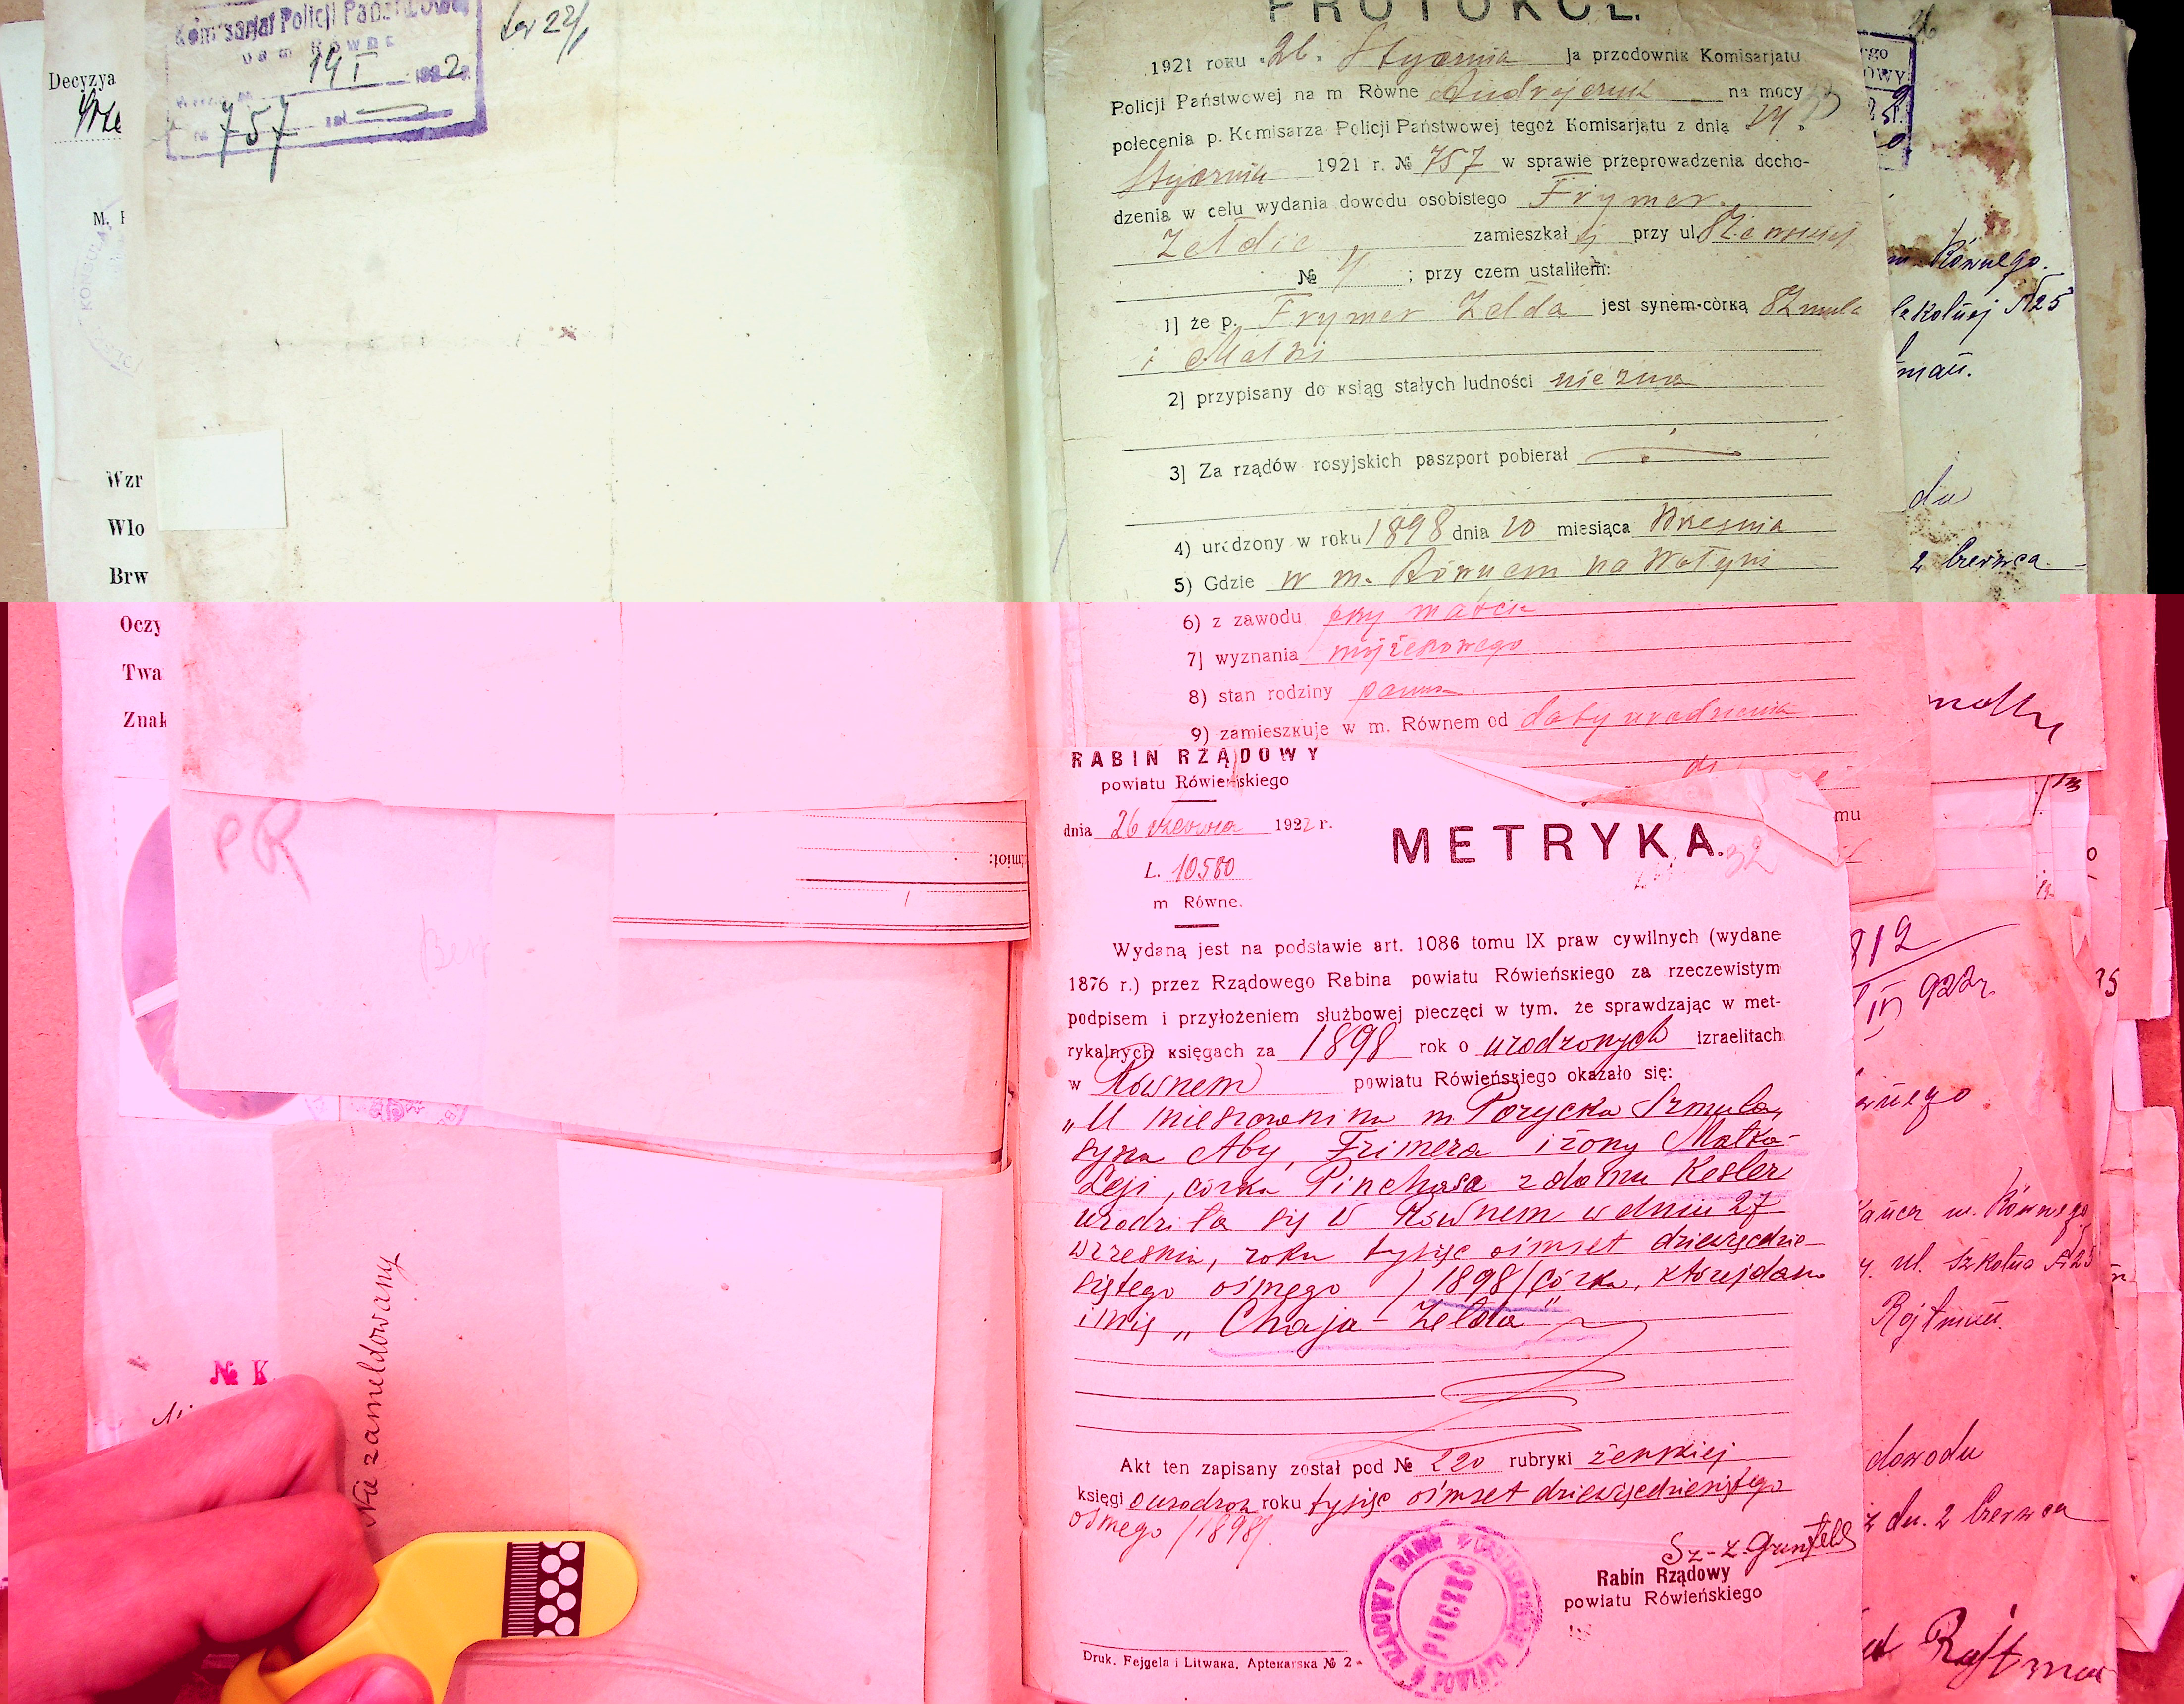 Komisarjat Policji Państwowej
19 I 1922
№ 757
Decyzya
M. P
KONSULA
Wzr
Wło
Brw
Oczy
Twa
Znak
PROTOKÓŁ.
1921 roku 26. Stycznia Ja przodownik Komisarjatu
Policji Państwowej na m Równe Andrejczuk na mocy
połecenia p. Komisarza Policji Państwowej tegoż Komisarjatu z dnia 19.
Stycznia 1921 r. № 757 w sprawie przeprowadzenia docho-
dzenia w celu wydania dowodu osobistego Frymer
Zełdie zamieszkałej przy ul.
№ 4 ; przy czem ustaliłem:
1] że p. Frymer Zełda jest synem-còrką Szmula
i Małki
2] przypisany do ksiąg stałych ludności nie zna
3] Za rządów rosyjskich paszport pobierał
4) urodzony w roku 1898 dnia 10 miesiąca Wresnia
5) Gdzie w m. Równem na Wołyni
6) z zawodu przy matce
7] wyznania mojżeszowego
8) stan rodziny panna
9) zamieszkuje w m. Równem od daty urodzenia
RABIN RZĄDOWY
powiatu Rówieńskiego
dnia 26 czerwca 1922 r.
L. 10580
m Równe.
METRYKA.
32
Wydaną jest na podstawie art. 1086 tomu IX praw cywilnych (wydane
1876 r.) przez Rządowego Rabina powiatu Rówieńskiego za rzeczewistym
podpisem i przyłożeniem służbowej pieczęci w tym, że sprawdzając w met-
rykalnych księgach za 1898 rok o urodzonych izraelitach
w Równem powiatu Rówieńskiego okazało się:
„U mieszczanina m Porycka Szmula,
syna Aby, Frimera i żony Małka-
Leji, córka Pinchasa z domu Kesler
urodziła się w Równem w dniu 27
wrzesnia, roku tysiąc oimset dziewięcdzie-
siątego ośmego /1898/ córka, której dano
imię „Chaja-Zełda"
Akt ten zapisany został pod № 220 rubryki żenskiej
księgi o urodzon roku tysiąc oimset dziewięcdziesiątego
ośmego /1898/.
Sz-Z. Grunfeld
Rabin Rządowy
powiatu Rówieńskiego
RZĄDOWY RABIN
PIECZĘĆ
Druk. Fejgela i Litwaka, Aptekarska № 2
PR
Nie zameldowany
№ K.
m. Równego.
Szkolnej №25
2 Czerwca
819
IV 922r
m. Równego
ul. Szkolna №25
Rojtman
dowodu
z dn. 2 Czerwca
Rojtman